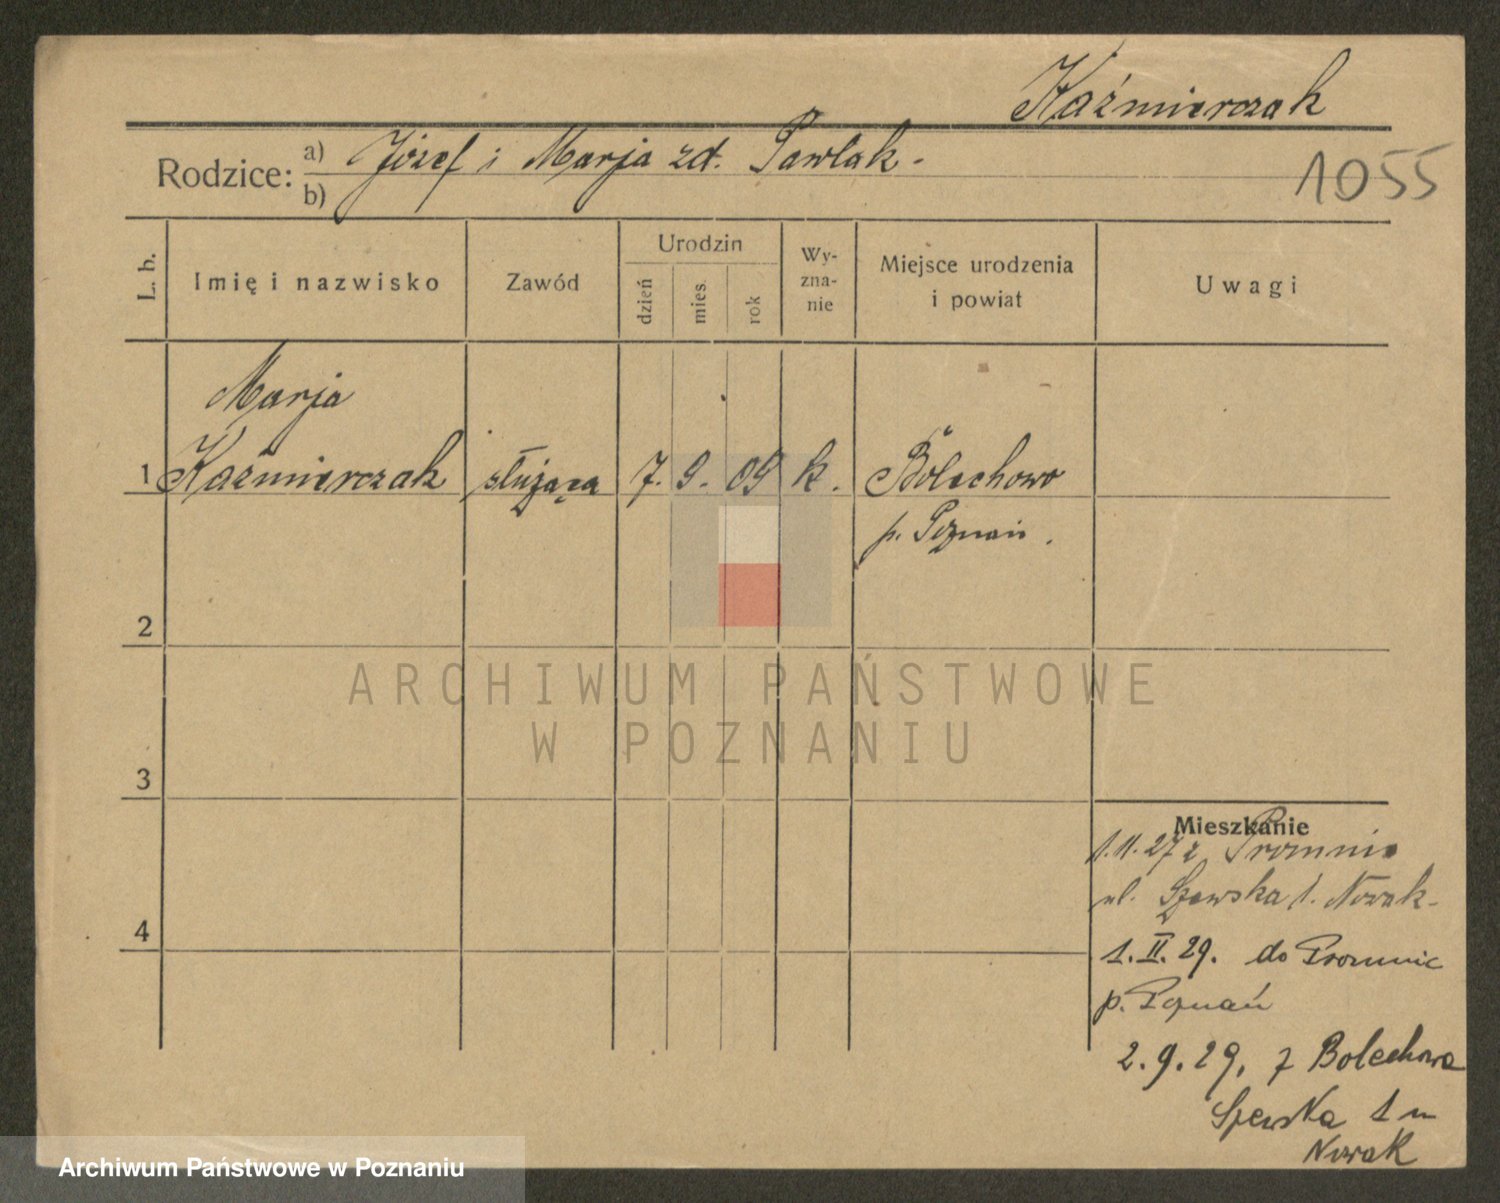 Kaźmierczak
Rodzice: a) Józef i Marja zd. Pawlak.
b)
1055
L. b.
Imię i nazwisko
Zawód
Urodzin
dzień
mies.
rok
Wy-
zna-
nie
Miejsce urodzenia
i powiat
Uwagi
Marja
1 Kaźmierczak służąca 7. 9. 09 k. Bolechowo
p. Poznań.
2
ARCHIWUM PAŃSTWOWE
W POZNANIU
3
Mieszkanie
1.11.27 z Promnic
ul. Szewska 1. Nowak-
4
1.II.29. do Promnic
p. Poznań
2.9.29, z Bolechowa
Szewska 1 u
Nowak
Archiwum Państwowe w Poznaniu